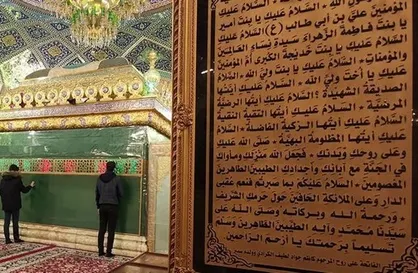 المؤمنين علي بن أبي طالب (ع) السلام عليك
يا بنت فاطمة الزهراء سيدة نساء العالمين
السلام عليك يا بنت خديجة الكبرى أم المؤمنين
والمؤمنات. السلام عليك يا بنت ولي الله. السلام
عليك يا أخت ولي الله. السلام عليك أيتها
الصديقة الشهيدة. السلام عليك أيتها الرضية
المرضية. السلام عليك أيتها التقية النقية
السلام عليك أيتها الزكية الفاضلة. السلام
عليك أيتها المظلومة البهية. صلى الله عليك
وعلى روحك وبدنك. فجعل الله منزلك ومأواك
في الجنة مع آبائك وأجدادك الطيبين الطاهرين
المعصومين. السلام عليكم بما صبرتم فنعم عقبى
الدار وعلى الملائكة الحافين حول حرمك الشريف
ورحمة الله وبركاته وصلى الله على
سيدنا محمد وآله الطيبين الطاهرين وسلم
تسليماً برحمتك يا أرحم الراحمين